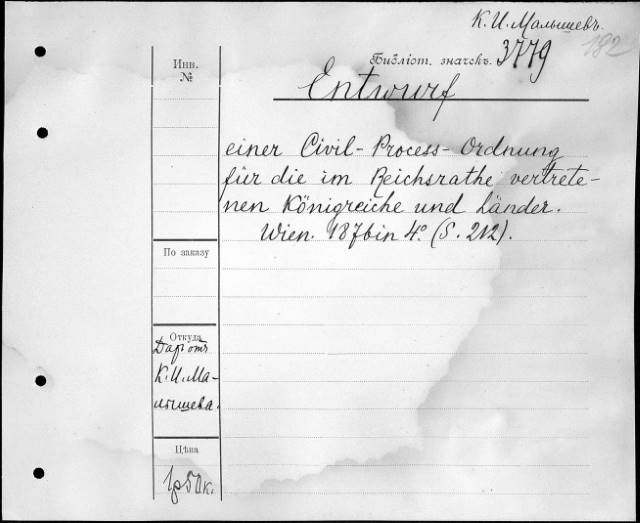 К. И. Малышевъ.
182
Библіот. значекъ. 3779
Инв.
№
Entwurf
einer Civil-Process-Ordnung
für die im Reichsrathe vertrete-
nen Königreiche und Länder.
Wien. 1876 in 4º (S. 212).
По заказу
Откуда
Даръ отъ
К. И. Ма-
лышева.
Цѣна
1р 50к.